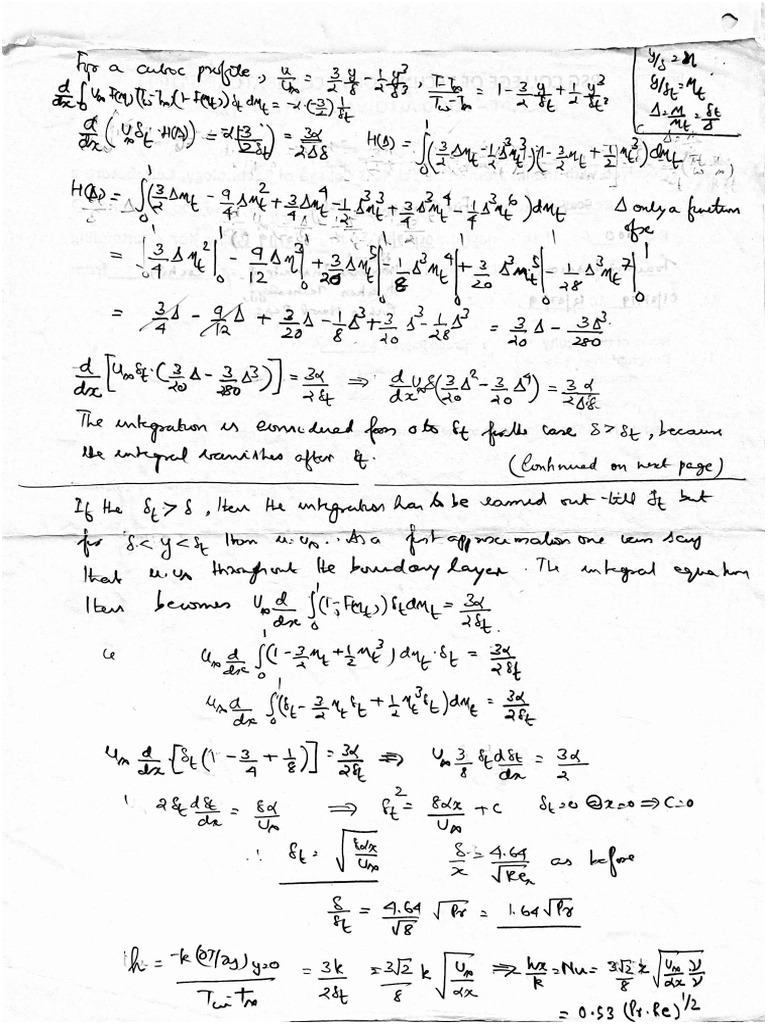 For a cubic profile, u/u∞ = 3/2 y/δ - 1/2 y³/δ³, T-T∞/Tw-T∞ = 1 - 3/2 y/δt + 1/2 y³/δt³
y/δ = η
y/δt = ηt
Δ = η/ηt = δt/δ
d/dx ∫₀¹ U∞ F(η) (Tw-T∞)(1-F(ηt)) δt dηt = -α·(-3/2) 1/δt
d/dx (U∞ δt · H(Δ)) = -α(-3/2δt) = 3α/2Δδ H(Δ) = ∫₀¹ (3/2 Δηt - 1/2 Δ³ηt³)·(1 - 3/2 ηt + 1/2 ηt³) dηt
H(Δ) = ∫₀¹ (3/2 Δηt - 9/4 Δηt² + 3/4 Δηt⁴ - 1/2 Δ³ηt³ + 3/4 Δ³ηt⁴ - 1/4 Δ³ηt⁶) dηt Δ only a function of x
= |3/4 Δηt²|₀¹ - 9/12 Δη³|₀¹ + 3/20 Δηt⁵|₀¹ - 1/8 Δ³ηt⁴|₀¹ + 3/20 Δ³ηt⁵|₀¹ - 1/28 Δ³ηt⁷|₀¹
= 3/4 Δ - 9/12 Δ + 3/20 Δ - 1/8 Δ³ + 3/20 Δ³ - 1/28 Δ³ = 3/20 Δ - 3Δ³/280
d/dx [U∞ δt · (3/20 Δ - 3/280 Δ³)] = 3α/2δt ⇒ d/dx U∞ δ (3/20 Δ² - 3/20 Δ⁴) = 3α/2Δδ
The integration is considered from 0 to δt for the case δ > δt, because
the integral vanishes after δt.
(Continued on next page)
If the δt > δ, then the integration has to be carried out till δt but
for δ < y < δt then u=u∞. As a first approximation one can say
that u=u∞ throughout the boundary layer. The integral equation
then becomes U∞ d/dx ∫₀¹ (1-F(ηt)) δt dηt = 3α/2δt
ie u∞ d/dx ∫₀¹ (1 - 3/2 ηt + 1/2 ηt³) dηt · δt = 3α/2δt
u∞ d/dx ∫₀¹ (δt - 3/2 ηt δt + 1/2 ηt³ δt) dηt = 3α/2δt
u∞ d/dx [δt (1 - 3/4 + 1/8)] = 3α/2δt ⇒ U∞ 3/8 δt dδt/dx = 3α/2
2δt dδt/dx = 8α/U∞ ⇒ δt² = 8αx/U∞ + C δt=0 @x=0 ⇒ C=0
∴ δt = √(8αx/U∞) δ/x = 4.64/√Rex as before
δ/δt = 4.64/√8 √Pr = 1.64√Pr
h = -k(∂T/∂y)y=0 / Tw-T∞ = 3k/2δt = 3√2/8 k √(U∞/αx) ⇒ hx/k = Nu = 3√2/8 x √(U∞/αx ν/ν)
= 0.53 (Pr.Re)^1/2